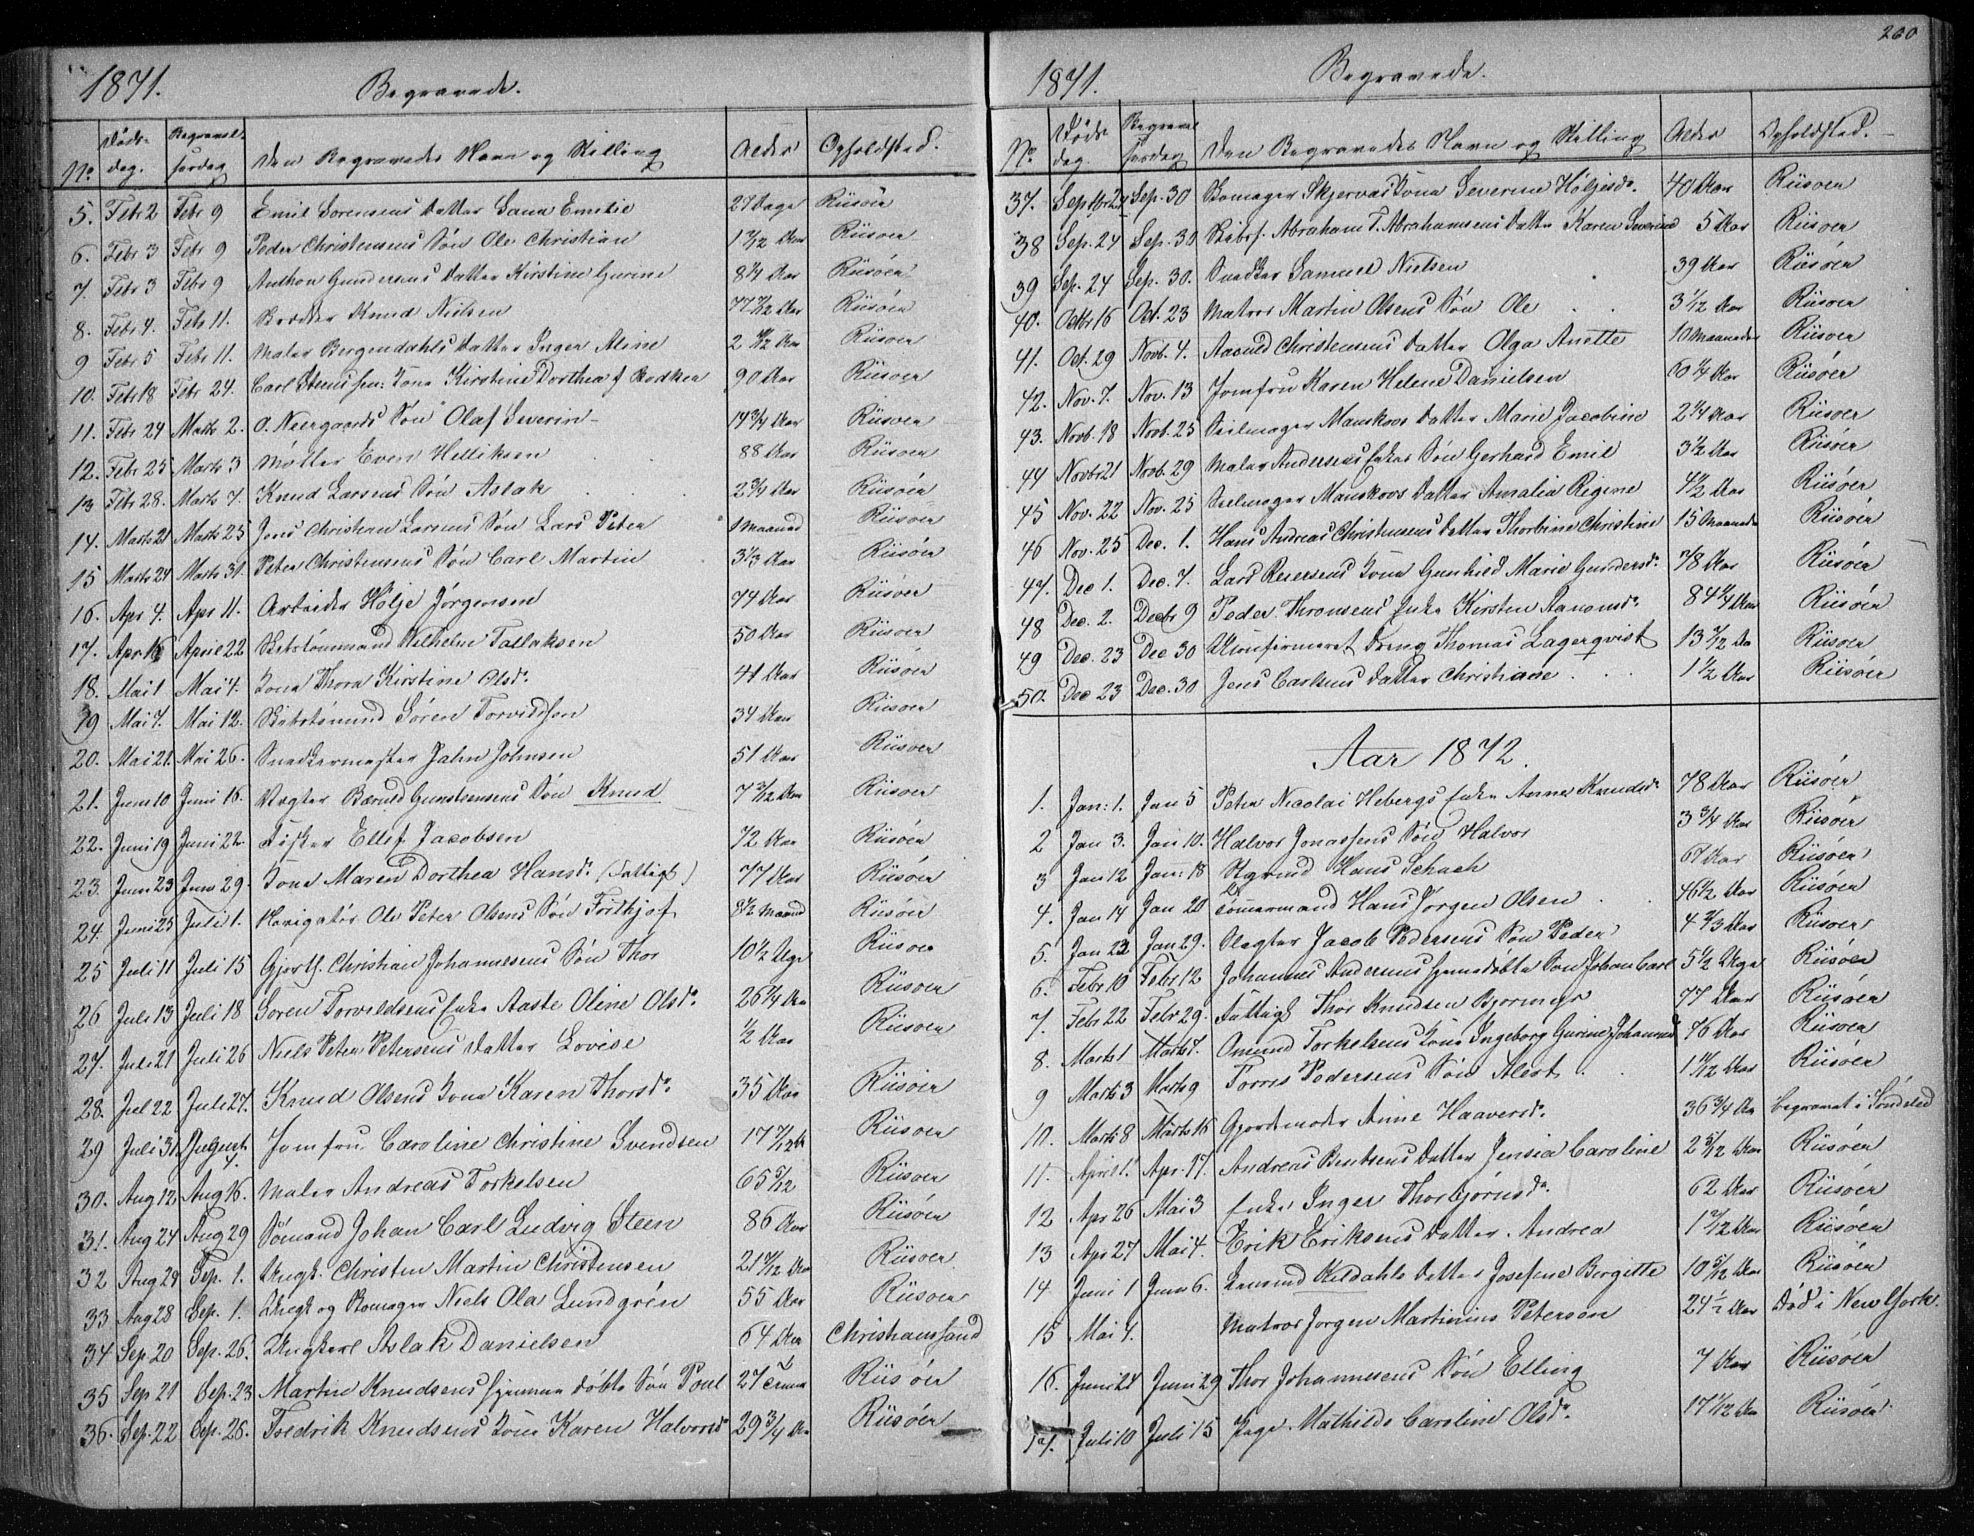 1871.
Begravede.
No Døds-dag. Begravelsesdag Den Begravedes Navn og Stilling Alder Opholdsted.
5. Febr 2 Febr 9 Emil Sørensens Datter Emilie 27 Dage Riisøer
6. Febr 3 Febr 9 Peder Christensens Søn Ole Christian Riisøer
7. Febr 3 Febr 9 Gundersens Datter Kirstine Gurine 8 1/4 Aar Riisøer
8. Febr 4. Febr 11. Knud Nielsen Aar Riisøer
9 Febr 5 Febr 11. Maler Bergendahls Datter Inger Aline Aar Riisøer
10. Febr 18 Febr 24. Carl Kone Kirstine Dorthea f. 90 Aar Riisøer
11. Febr 24 Marts 2. O. Neergaards Søn Olaf Severin 14 3/4 Aar Riisøer
12. Febr 25 Marts 3 Møller Even Helliksen 88 Aar Riisøer
13 Febr 28. Marts 7. Knud Larsens Søn Aslak 2 3/4 Aar Riisøer
14. Marts 21 Marts 25 Jens Christian Larsens Søn Lars Peter 1 Maaned Riisøer
15 Marts 24 Marts 31. Peter Christensens Søn Carl Martin 3 1/3 Aar Riisøer
16. Apr 4. Apr 11. Arbeider Hølje Jørgensen 74 Aar Riisøer
17. Apr 16 April 22 Skibstømmand Wilhelm Tallaksen 50 Aar Riisøer
18. Mai 1 Mai 4. Kone Thora Kirstine Olsdr. 41 Aar Riisøer
19 Mai 7. Mai 12. Skibstømmd Søren Torvildsen 34 Aar Riisøer
20. Mai 21. Mai 26. Snedkermester Jahn Johnsen 51 Aar Riisøer
21. Juni 10 Juni 16. Vægter Gunstensens Søn Knud 7 3/12 Aar Riisøer
22. Juni 19 Juni 22. Fisker Ellef Jacobsen 72 Aar Riisøer
23. Juni 23 Juni 29. Kone Maren Dorthea Hansdr. (Fattigl) 77 Aar Riisøer
24. Juni 25 Juli 1. Navigatør Ole Peter Olsens Søn Fridtjof 8 1/2 Maaned Riisøer
25 Juli 11 Juli 15 Christian Johannesens Søn Thor 10 1/2 Uge Riisøer
26 Juli 13 Juli 18 Søren Torvildsens Enke Aaste Oline Olsdr. 26 1/4 Aar Riisøer
27. Juli 21 Juli 26 Niels Peter Petersens Datter Lovise 1/2 Aar Riisøer
28. Juli 22 Juli 27. Knud Olsens Kone Karen Thorsdr. 35 Aar Riisøer
29 Juli 31 August 4. Jomfru Caroline Christine Svendsen 17 7/12 Aar Riisøer
30. Aug 12 Aug 16. Maler Andreas Torkelsen 65 5/12 Riisøer
31. Aug 24 Aug 29 Sømand Johan Carl Ludvig Steen 86 Aar Riisøer
32 Aug 29 Sep. 1. Ungk. Christen Martin Christensen 21 11/12 Aar Riisøer
33 Aug 28 Sep. 1. Ungk og Niels Ola Lundgrén 55 Aar Riisøer
34 Sep. 20 Sep. 26. Ungkarl Aslak Danielsen 64 Aar Christianssand
35 Sep 21 Sep. 23 Martin Knudsens hjemme døbte Søn Poul 27 Timer Riisøer
36. Sep. 22 Sep. 26. Fredrik Knudsens Kone Karen Halvorsdr 29 3/4 Aar Riisøer
260
1871.
Begravede.
No Døds dag. Begravelsesdag Den Begravedes Navn og Stilling Alder Opholdsted.
37. Septbr 24 Sep. 30 Skjervas Kone Severine Høljesdr. 40 Aar Riisøer
38 Sep. 24 Sep. 30 Skibsf. Abraham T. Abrahamsens Datter Karen Severine 5 Aar Riisøer
39 Sep. 24 Sep. 30. Snedker Samuel Nielsen 39 Aar Riisøer
40. Octbr 16 Oct. 23 Matros Martin Olsens Søn Ole 3 1/12 Aar Riisøer
41. Oct. 29 Novb. 4. Aasmd Christensens Datter Olga Anette 10 Maaneder Riisøer
42. Nov. 7. Nov. 13 Jomfru Karen Helene Danielsen Aar Riisøer
43. Novb. 18 Novb. 25 Seilmager Manskovs Datter Marie Jacobine 2 1/4 Aar Riisøer
44 Novbr 21 Novb. 29 Maler Andersens Enkes Søn Gerhard Emil 3 1/2 Aar Riisøer
45 Nov. 22 Nov. 25 Seilmager Manskovs Datter Amalia Regine 4 1/2 Aar Riisøer
46 Nov. 25 Dec. 1. Hans Andreas Christensens Datter Thorbine Christine 15 Maaneder Riisøer
47. Dec 1. Dec. 7. Lars Reiersens Kone Gunhild Marie Gundersdr. 78 Aar Riisøer
48 Dec. 2. Decbr 9 Peder Thronsens Enke Kirsten Aanonsdr. 84 1/4 Aar Riisøer
49 Dec. 23 Dec 30 Ukonfirmeret Dreng Thomas Lagerqvist 13 7/12 Aar Riisøer
50. Dec 23 Dec. 30 Jens Carlsens Datter Christiane 1 1/2 Aar Riisøer
Aar 1872.
1. Jan: 1. Jan 5 Peter Nicolai Hebergs Enke Anne Knudsdr. 78 Aar Riisøer
2 Jan 3. Jan 10. Halvor Jonassens Søn Halvor 3 3/4 Aar Riisøer
3 Jan 12 Jan: 18 Hans Schach Aar Riisøer
4. Jan 14 Jan 20 Tømmermand Hans Jørgen Olsen 46 1/2 Aar Riisøer
5. Jan 23 Jan 29. Slagter Jacob Pedersens Søn Peder 4 2/3 Aar Riisøer
6. Febr 10 Febr 12 Johannes Andersens hjemmedøbte Søn Johan Carl 5 1/2 Uge Riisøer
7. Febr 22 Febr 29. Fattigl Thor Knudsen 77 Aar Riisøer
8. Marts 1 Marts 7. Omund Torkelsens Kone Ingeborg Gurine Johannesd 76 Aar Riisøer
9 Marts 3 Marts 9 Torres Pedersens Søn Alert Aar Riisøer
10. Marts 8 Marts 16 Gjordemoder Anne Haaversdr. 36 3/4 Aar begravet i Søndeled
11. April 1. Apr. 17. Andreas Bentsens Datter Jensia Caroline 2 5/12 Aar Riisøer
12 Apr 26 Mai 3 Enke Inger Thorbjørnsdr. 62 Aar Riisøer
13 Apr 27 Mai 4. Erik Eriksens Datter Andrea 1 7/12 Aar Riisøer
14 Juni 1 Juni 6. Datter Josefine Birgitte 10 5/12 Aar Riisøer
15 Mai 4. Matros Jørgen Martinius Peterson 24 1/2 Aar død i New York.
16. Juni 24 Juni 29 Thor Johannesens Søn Elling 7 Aar Riisøer
17. Juli 10 Juli 15 Pige Mathilde Caroline Olsdr. 17 1/12 Aar Riisøer